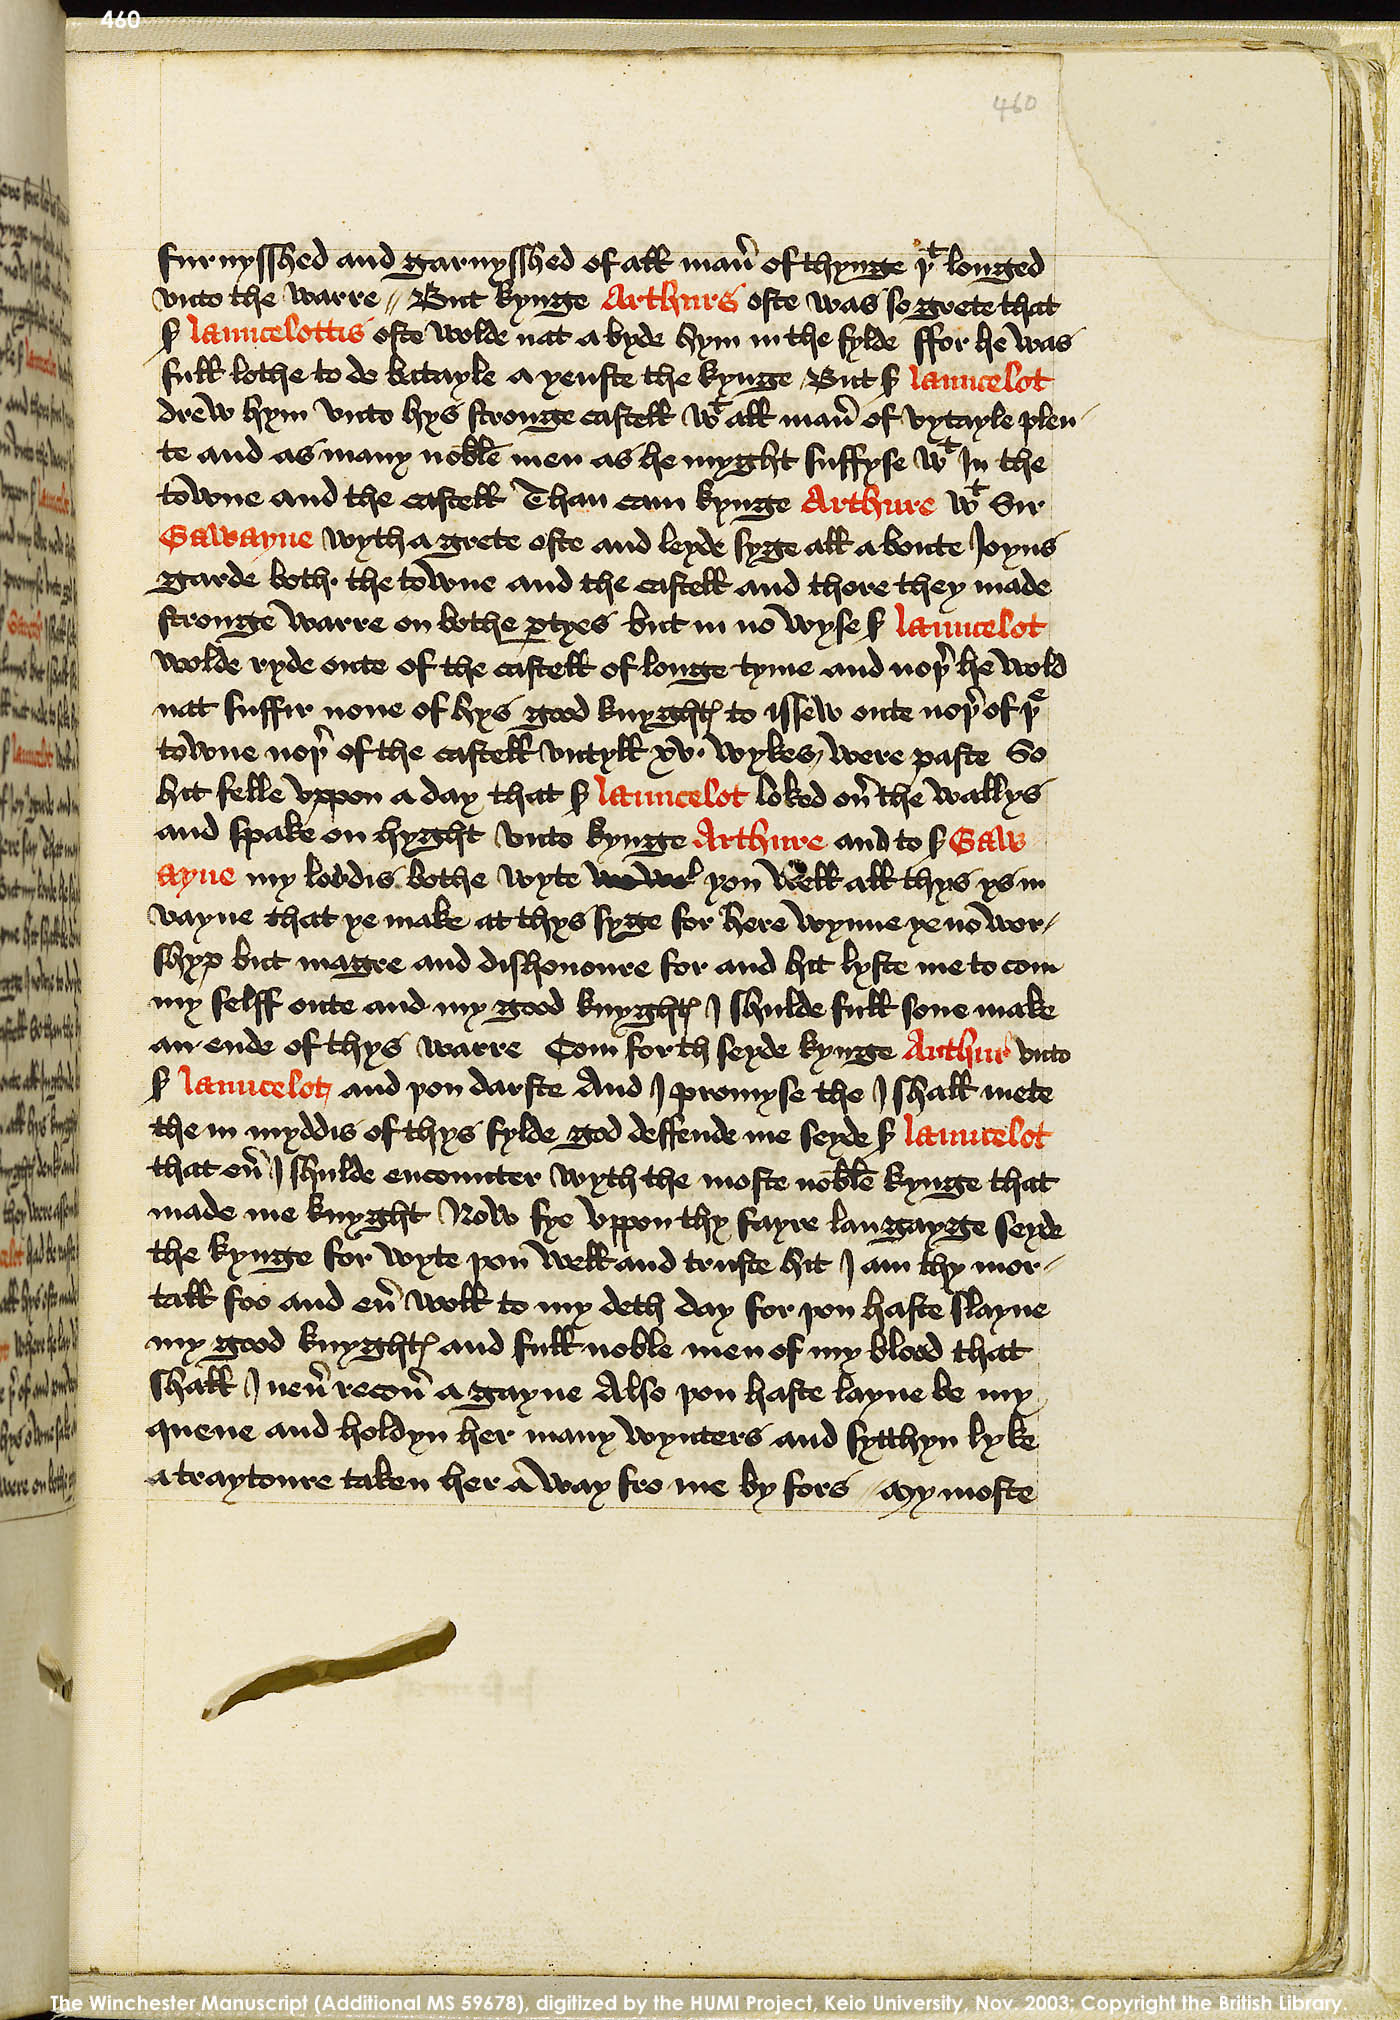 460
460
furnysshed and garnysshed of all man̄ of thynge þᵗ longed
vnto the warre // But kynge Arthurs oste was so grete that
ẞ launcelottis oste wolde nat a byde hym in the fylde ffor he was
full lothe to do batayle a yenste the kynge / But ẞ launcelot
drew hym vnto hys stronge castell wᵗ all man̄ of vytayle plen-
te and as many noble men as he myght suffyse wᵗ In the
towne and the castell Than cam kynge Arthure wᵗ Sir
Gawayne wyth a grete oste and leyde syge all a boute Joyus
garde both· the towne and the castell and there they made
stronge warre on bothe ꝑtyes but in no wyse ẞ launcelot
wolde ryde oute of the castell of longe tyme and noþ̉ he wold
nat suffir none of hys good knyghtꝭ to issew oute noþ̉ of þᵉ
towne noþ̉ of the castell vntyll xv· wykes were paste So
hit felle vppon a day that ẞ launcelot loked ov̉ the wallys
and spake on hyght vnto kynge Arthure and to ẞ Gaw
ayne my lordis bothe wyte you well all thys ys in
vayne that ye make at thys syge for here wynne ye no wor-
shyp but magre and dishonoure for and hit lyste me to com
my selff oute and my good knyghtꝭ I shulde full sone make
an ende of thys warre Com forth seyde kynge Arthur vnto
ẞ launcelot and þou darste And I promyse the I shall mete
the in myddis of thys fylde god deffende me seyde ẞ launcelot
that ev̉ I shulde encounter wyth the moste noble kynge that
made me knyght Now fye vppon thy fayre langayge seyde
the kynge for wyte þou well and truste hit I am thy mor-
tall foo and ev̉ woll to my deth day for þou haste slayne
my good knyghtꝭ and full noble men of my blood that
shall I nev̉ recov̉ a gayne Also þou haste layne be my
quene and holdyn her many wynters and sytthyn lyke
a traytoure taken her a way fro me by fors // My moste
The Winchester Manuscript (Additional MS 59678), digitized by the HUMI Project, Keio University, Nov. 2003; Copyright the British Library.